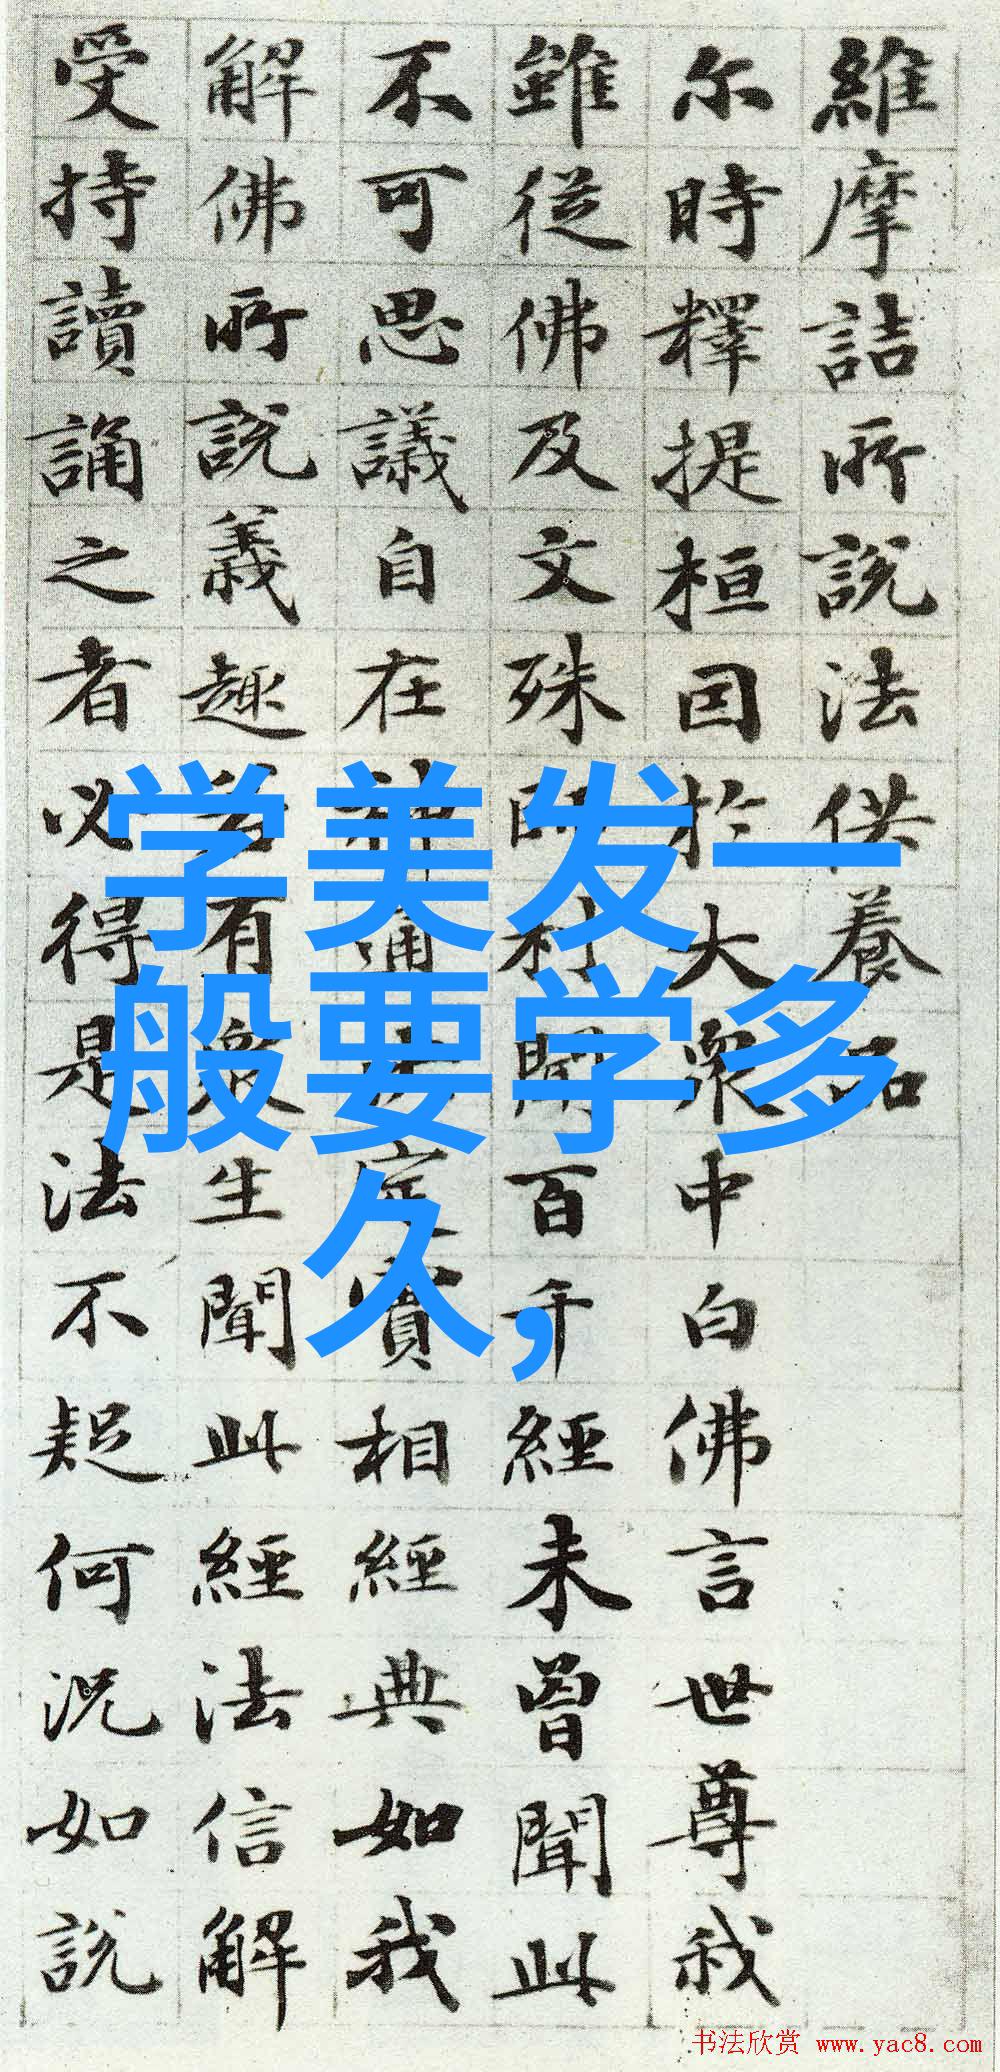 維摩詰所說法供養品
尔時釋提桓因於大衆中白佛言世尊我
雖從佛及文殊師利聞百千經未曾聞此
不可思議自在神通決定實相經典如我
解佛所說義趣若有衆生聞此經法信解
受持讀誦之者必得是法不疑何況如說
学美发一
般要学多
久,
书法欣赏 www.yac8.com